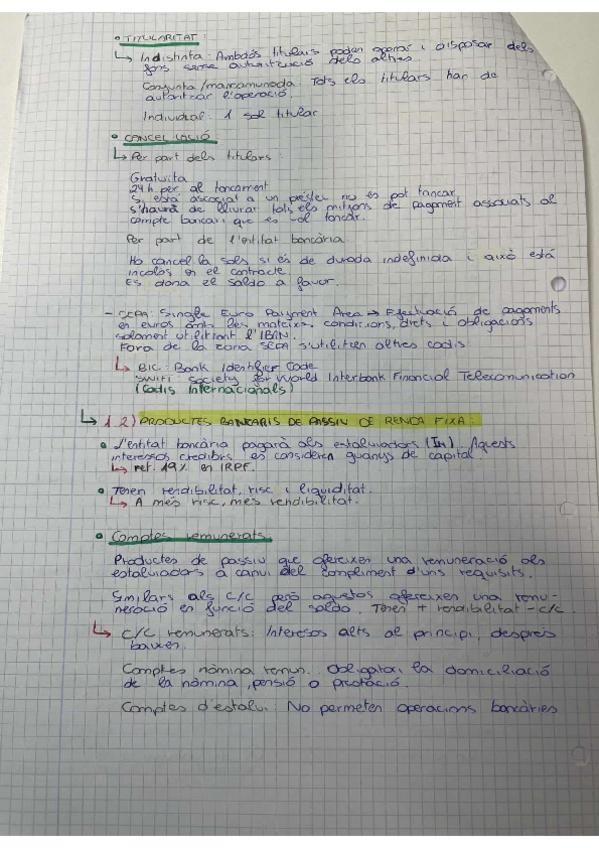 • TITULARITAT:
↳ Indistinta: Ambdós titulars poden operar i disposar dels
fons sense autorització dels altres.
Conjunta/mancomunada: Tots els titulars han de
autoritzar l'operació.
Individual: 1 sol titular
• CANCEL·LACIÓ
↳ Per part dels titulars:
Gratuita
24h per al tancament
Si està associat a un préstec no es pot tancar
s'haurà de lliurar tots els mitjans de pagament associats al
compte bancari que es vol tancar.
Per part de l'entitat bancària
Ho cancel·la sols si és de durada indefinida i això està
en el contracte.
Es dona el saldo a favor.
- SEPA: Single Euro Payment Area → Efectuació de pagaments
en euros amb les mateixes condicions, drets i obligacions
solament utilitzant l'IBAN.
Fora de la zona SEPA s'utilitzen altres codis
↳ BIC: Bank Identifier Code
SWIFT: Society for World Interbank Financial Telecomunication
(Codis Internacionals)
↳ 1.2) PRODUCTES BANCARIS DE PASSIU DE RENDA FIXA:
• L'entitat bancària pagarà als estalviadors (In). Aquests
interesos es consideren guanys de capital.
↳ ret. 19% en IRPF.
• Tenen rendibilitat, risc i liquiditat.
↳ A més risc, més rendibilitat.
• Comptes remunerats
Productes de passiu que ofereixen una remuneració als
estalviadors a canvi del compliment d'uns requisits.
Similars als c/c però aquestos ofereixen una remu-
neració en funció del saldo. Tenen + rendibilitat - c/c.
↳ C/C remunerats: Interesos alts al principi, després
baixen.
Comptes nòmina remun.: Obligatori la domiciliació
de la nòmina, pensió o prestació.
Comptes d'estalvi: No permeten operacions bancàries